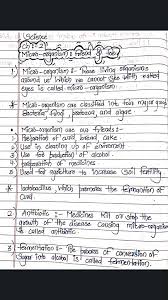 Science
Micro-organism : Friend or foe
1) Micro-organism :- Those living organisms
around us which we cannot see with naked
eyes is called micro-organism.
* Micro-organism are classified into four major groups
Bacteria, fungi, protozoa, and algae.
* Micro-organism use our friends :-
1. Preparation of curd, bread, cake.
2. Use in cleaning up of environment
3. Use for production of alcohol.
4. preparation of medicines
5. Used for agriculture to increase Soil fertility
* Lactobacillus, which promotes the formation of
curd.
2. Antibiotic :- Medicines kill or stop the
growth of the disease causing micro-organism
is called antibiotic.
3. Fermentation :- The process of conversion of
Sugar into alcohol is called fermentation.